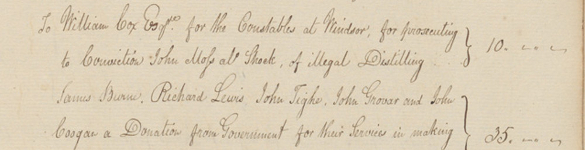 To William Cox Esqre. for the Constables at Windsor, for prosecuting
to Conviction John Moss als Shook, of illegal Distilling } 10. " "
James Burne, Richard Lewis, John Tighe, John Grovar and John
Coogan a Donation from Government for their Services in making } 35. " "